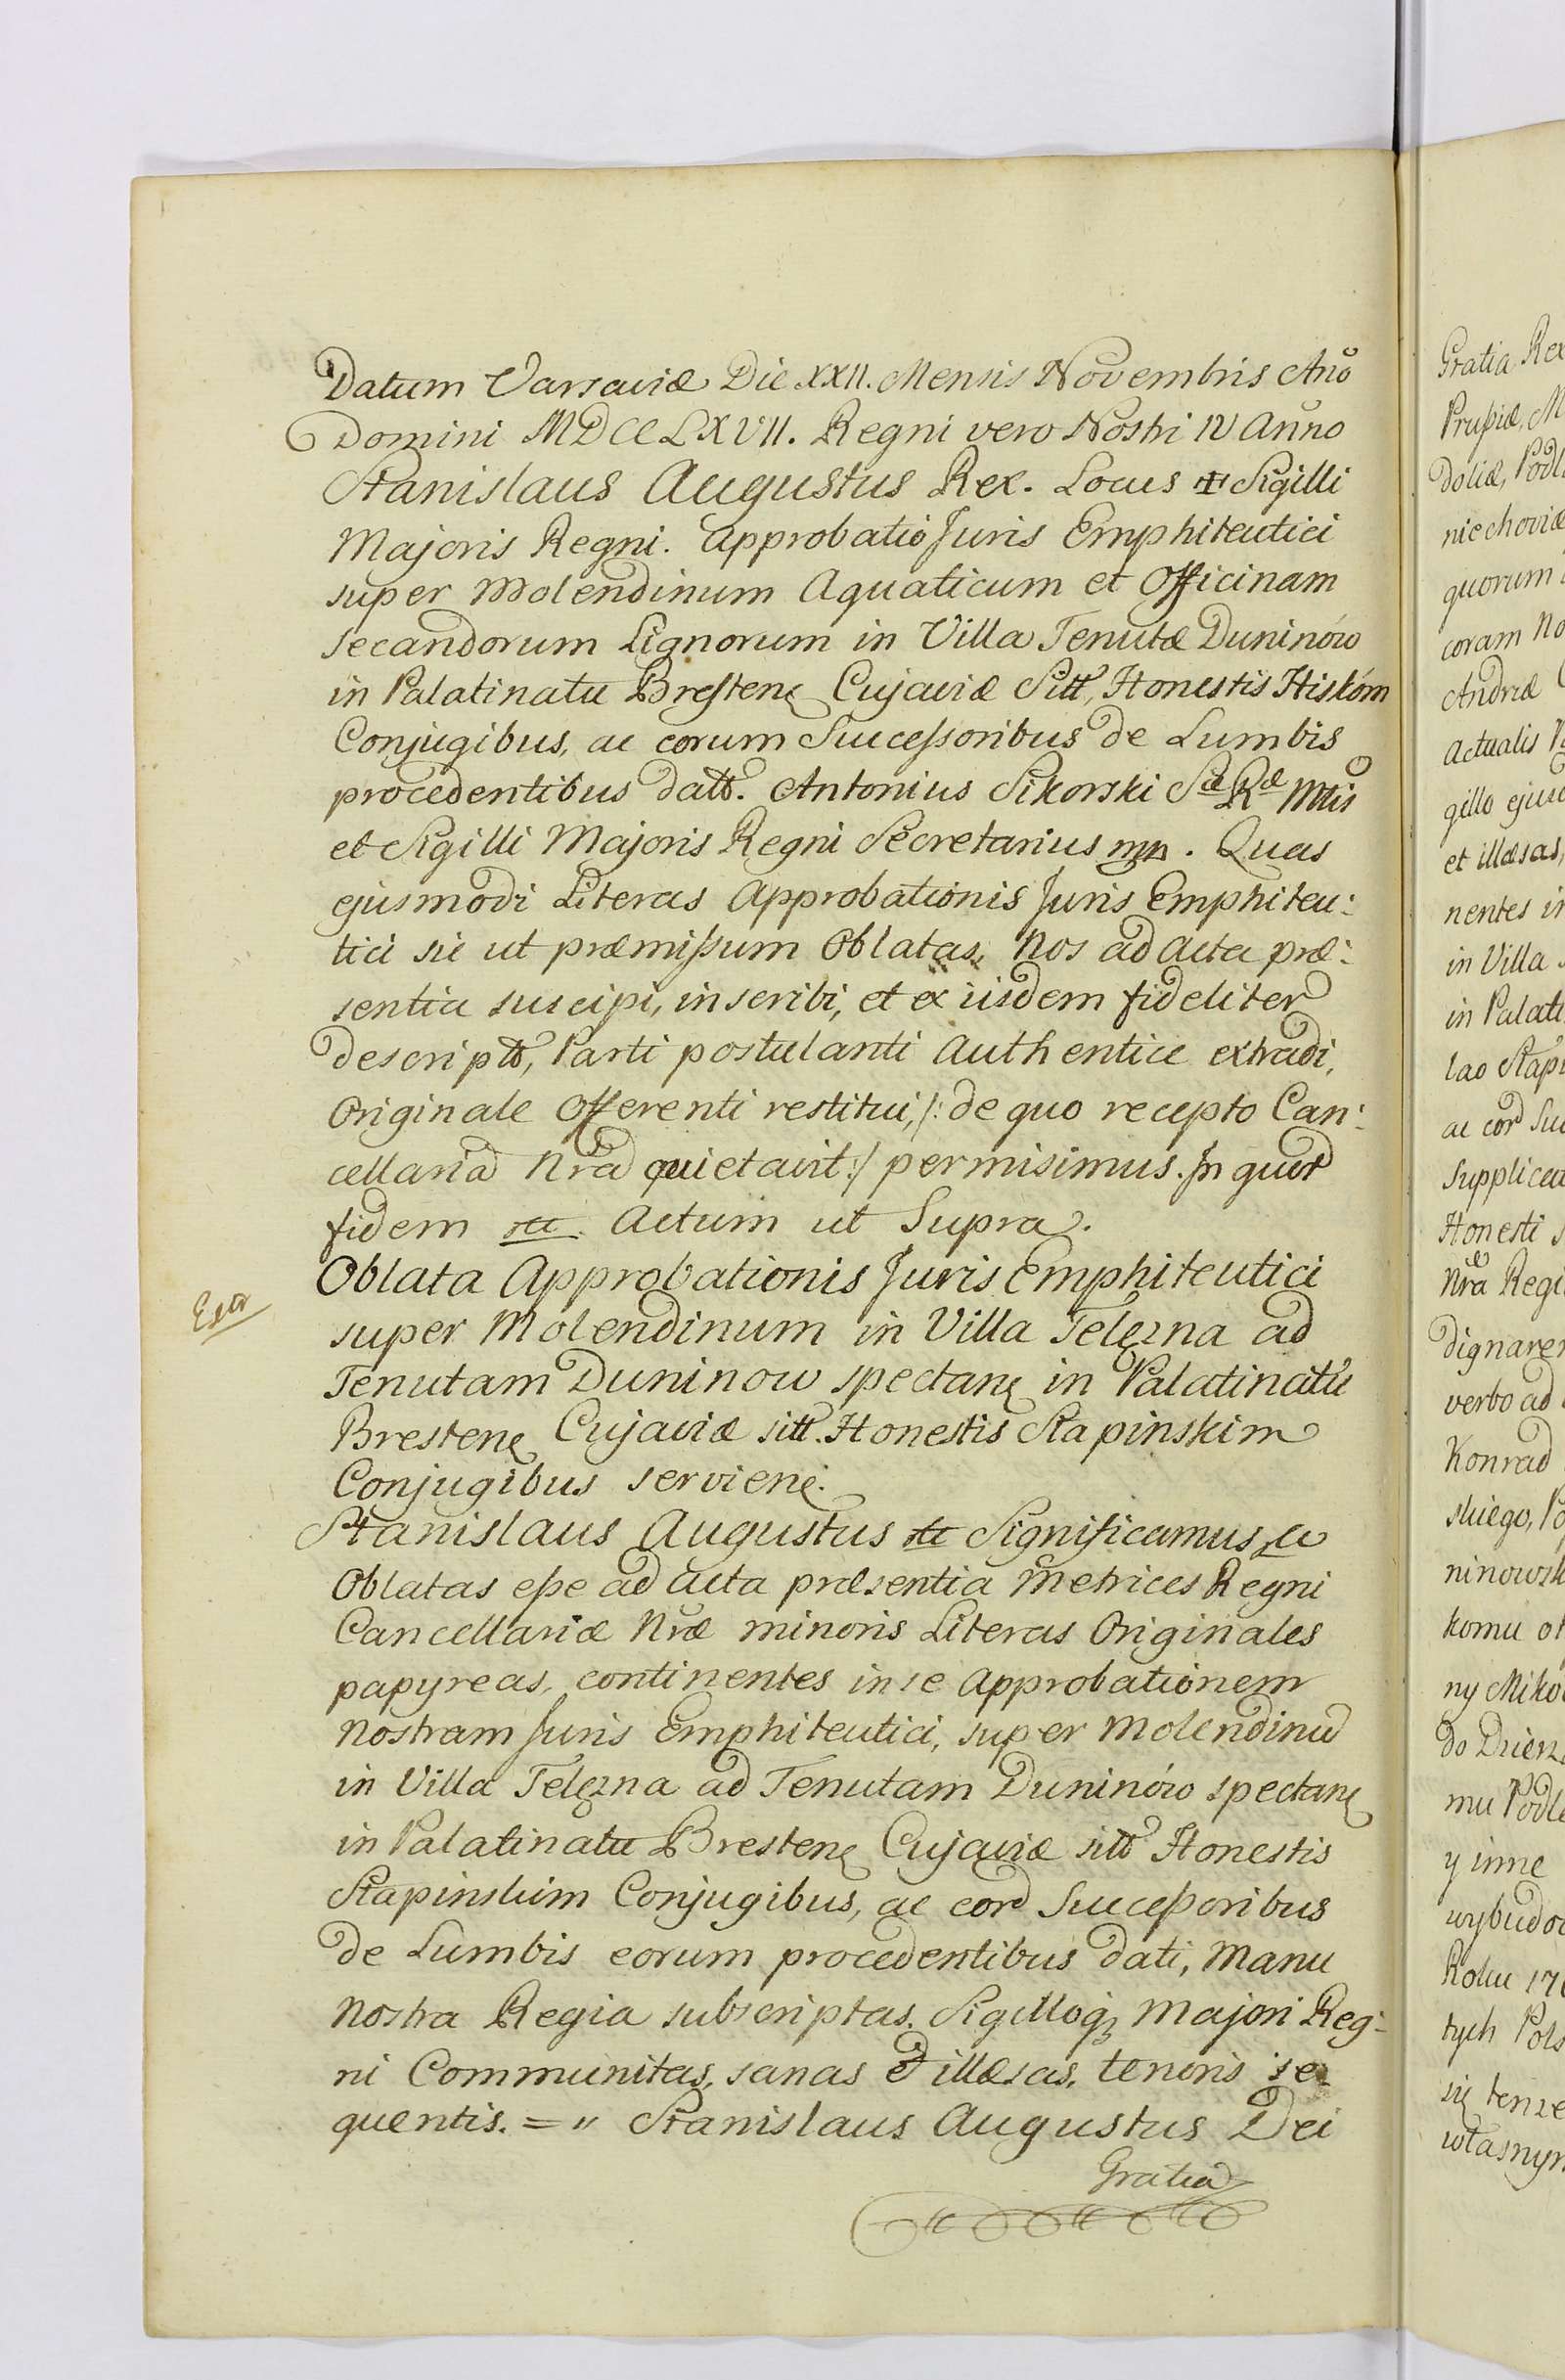 Datum Varsaviæ Die XXII. Mensis Novembris Año
Domini MDCCLXVII. Regni vero Nostri IV Año
Stanislaus Augustus Rex. Locus Sigilli
Majoris Regni. Approbatio Juris Emphiteutici
super Molendinum Aquaticum et Officinam
secandorum Lignorum in Villa Tenutæ Duninów
in Palatinatu Brestenę Cujaviæ Sitt, Honestis Hiskóm
Conjugibus, ac eorum Successoribus de Lumbis
procedentibus datt. Antonius Sikorski Sæ Ræ Mtis
et Sigilli Majoris Regni Secretarius mp. Quas
ejusmodi Literas Approbationis Juris Emphiteu:
tici sic ut præmissum Oblatas, Nos ad Acta præ:
sentia suscipi, inscribi, et ex iisdem fideliter
descriptt, Parti postulanti Authentice extradi,
Originale Offerenti restitui, /: de quo recepto Can:
cellariã Nrã quietavit :/ permisimus. In quor
fidem etc. Actum ut Supra.
Oblata Approbationis Juris Emphiteutici
super Molendinum in Villa Telęzna ad
Tenutam Duninow spectanę in Palatinatu
Brestenę Cujaviæ sitt. Honestis Stapinskim
Conjugibus servienę.
Stanislaus Augustus etc Significamus etc
Oblatas esse ad Acta præsentia Metrices Regni
Cancellariæ Nræ minoris Literas Originales
papyreas, continentes in se Approbationem
Nostram Juris Emphiteutici, super Molendinu
in Villa Telęzna ad Tenutam Duninów spectanę
in Palatinatu Brestenę Cujaviæ sitt Honestis
Stapinskim Conjugibus, ac eor Successoribus
de Lumbis eorum procedentibus dati, Manu
Nostra Regia subscriptas. Sigilloqȝ Majori Reg-
ni Communitas, sanas et illæsas, tenoris se-
quentis. = " Stanislaus Augustus Dei
Gratia
Gratia Rex
Prussiæ, M
doliæ, Podl
niechoviæ
quorum
coram No
Andreæ
Actualis
gillo ejusd
et illæsas,
nentes in
in Villa
in Palati
lao Stapi
ac eor Suc
Supplicat
Honesti
Nræ Regi
dignarem
verbo ad
Konrad
skiego, Po
ninowsk
komu o
ny Miko
do Dzierz
mu Podle
y inne
wybudo
Roku 17
tych Pols
się tenże
własnym